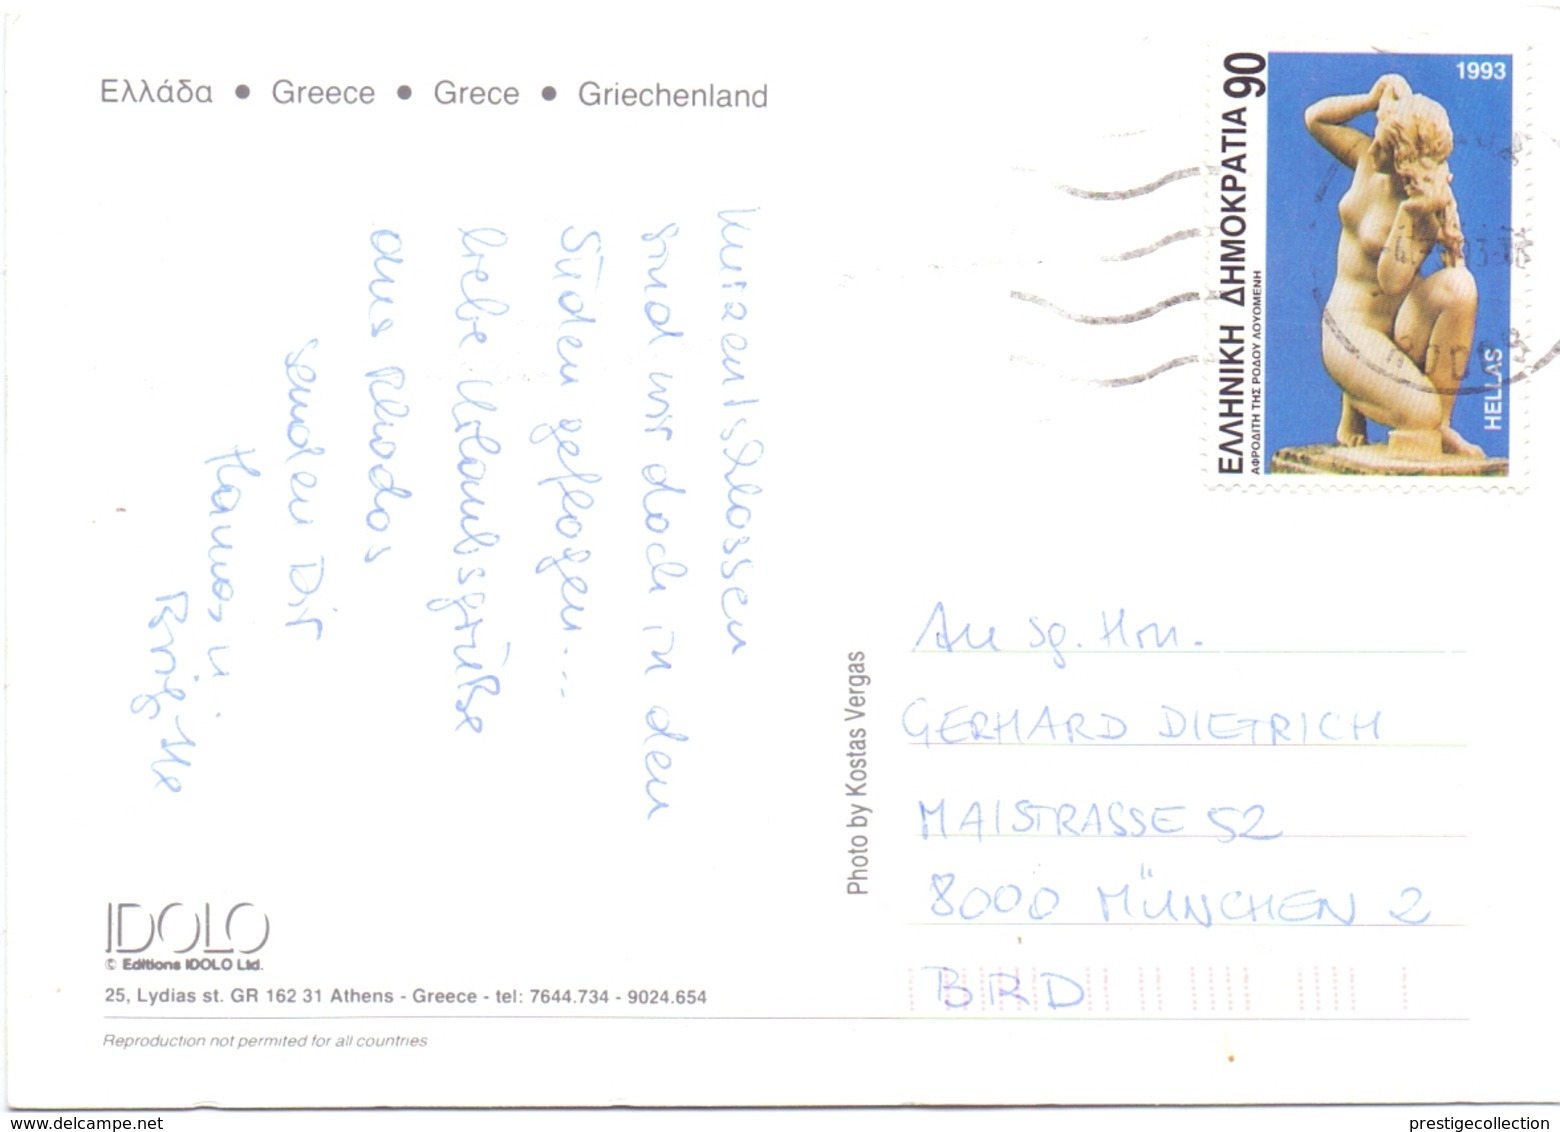 Ελλάδα • Greece • Grece • Griechenland
Kurzentschlossen
sind wir doch in den
Süden geflogen...
liebe Urlaubsgrüße
aus Rhodos
senden Dir
Hannos u
Brigitte
1993
ΕΛΛΗΝΙΚΗ ΔΗΜΟΚΡΑΤΙΑ 90
ΑΦΡΟΔΙΤΗ ΤΗΣ ΡΟΔΟΥ ΛΟΥΟΜΕΝΗ
HELLAS
Photo by Kostas Vergas
An Sg. Hrn.
GERHARD DIETRICH
MAISTRASSE 52
8000 MÜNCHEN 2
BRD
IDOLO
© Editions IDOLO Ltd.
25, Lydias st. GR 162 31 Athens - Greece - tel: 7644.734 - 9024.654
Reproduction not permited for all countries
delcampe.net
prestigecollection